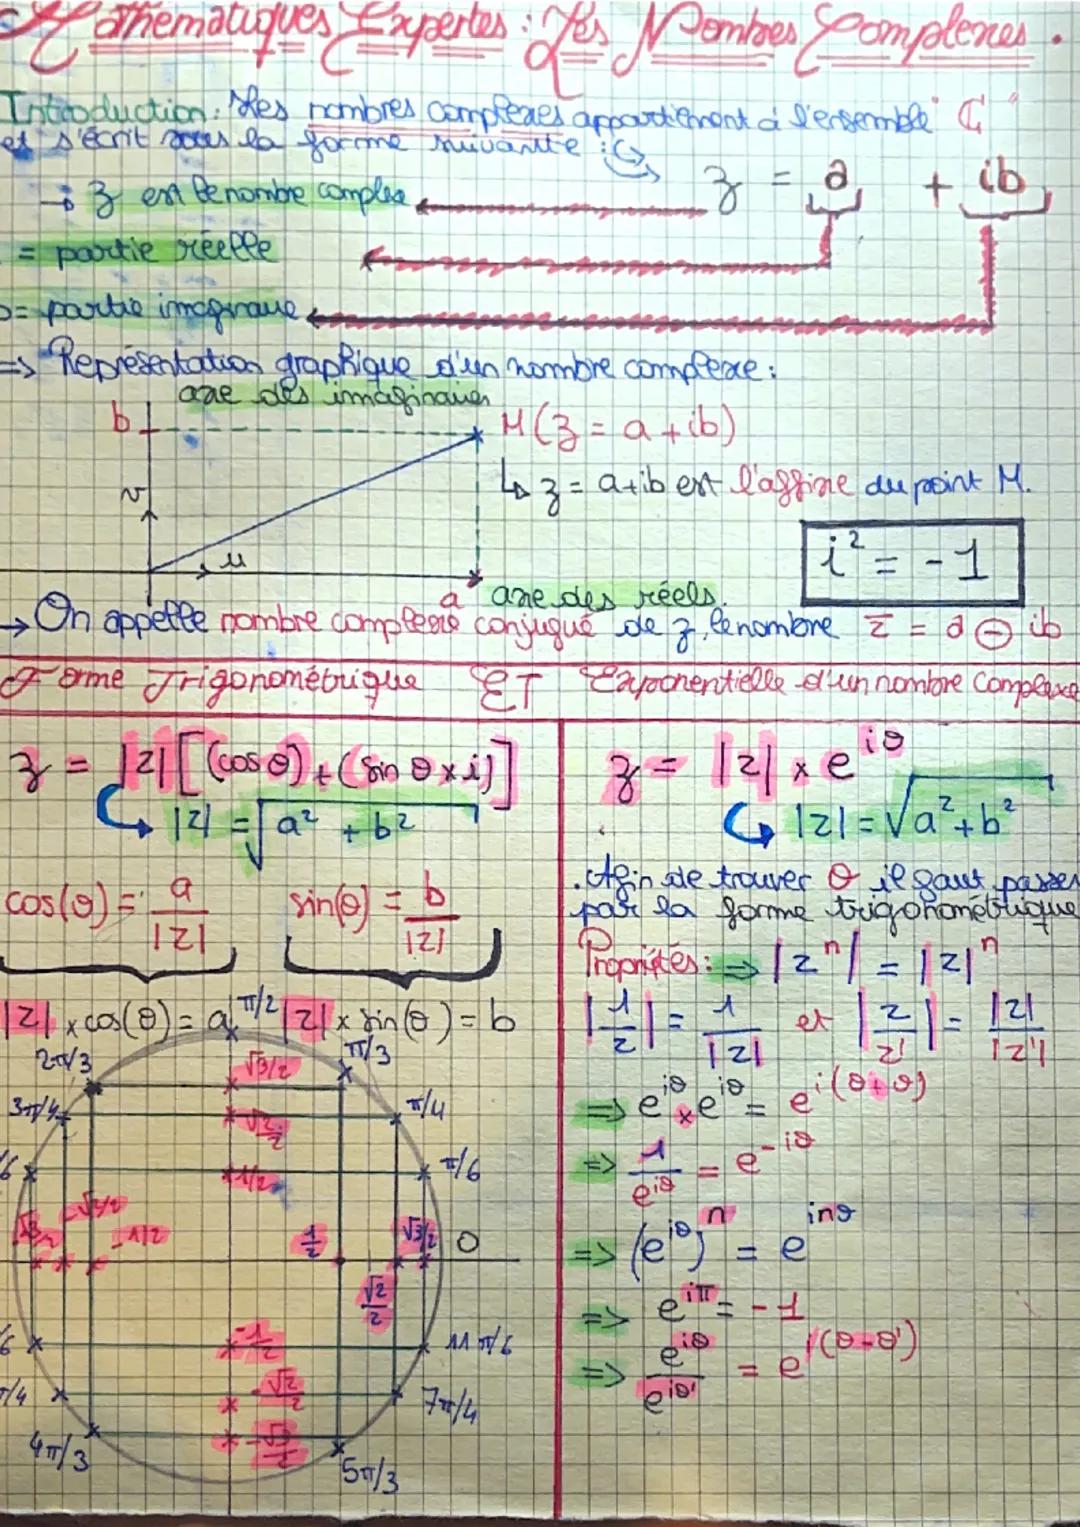 Mathématiques Expertes : Les Nombres Complexes.
Introduction : Les nombres complexes appartiennent à l'ensemble "ℂ"
et s'écrit sous la forme suivante :
z = a + ib
→ z est le nombre complexe
= partie réelle
b = partie imaginaire
=> Représentation graphique d'un nombre complexe :
axe des imaginaires
b
M(z = a + ib)
↳ z = a+ib est l'affixe du point M.
v
u
i² = -1
a axe des réels.
→ On appelle nombre complexe conjugué de z, le nombre z̅ = a - ib
Forme Trigonométrique ET Exponentielle d'un nombre complexe
z = |z|[(cos θ) + (sin θ x i)]
↳ |z| = √a² + b²
cos(θ) = a/|z| sin(θ) = b/|z|
|z| x cos(θ) = a |z| x sin(θ) = b
π/2
2π/3 √3/2 π/3
3π/4 √2/2 π/4
/6 1/2 π/6
-√3/2 -√2/2 -1/2 1/2 √2/2 √3/2 0
/6 -1/2 11π/6
/4 -√2/2 7π/4
4π/3 -√3/2 5π/3
z = |z| x e^iθ
↳ |z| = √a² + b²
. Afin de trouver θ il faut passer
par la forme trigonométrique
Propriétés : => |z^n| = |z|^n
|1/z| = 1/|z| et |z/z'| = |z|/|z'|
=> e^iθ x e^iθ = e^i(θ+θ)
=> 1/e^iθ = e^-iθ
=> (e^iθ)^n = e^inθ
=> e^iπ = -1
=> e^iθ/e^iθ' = e^i(θ-θ')